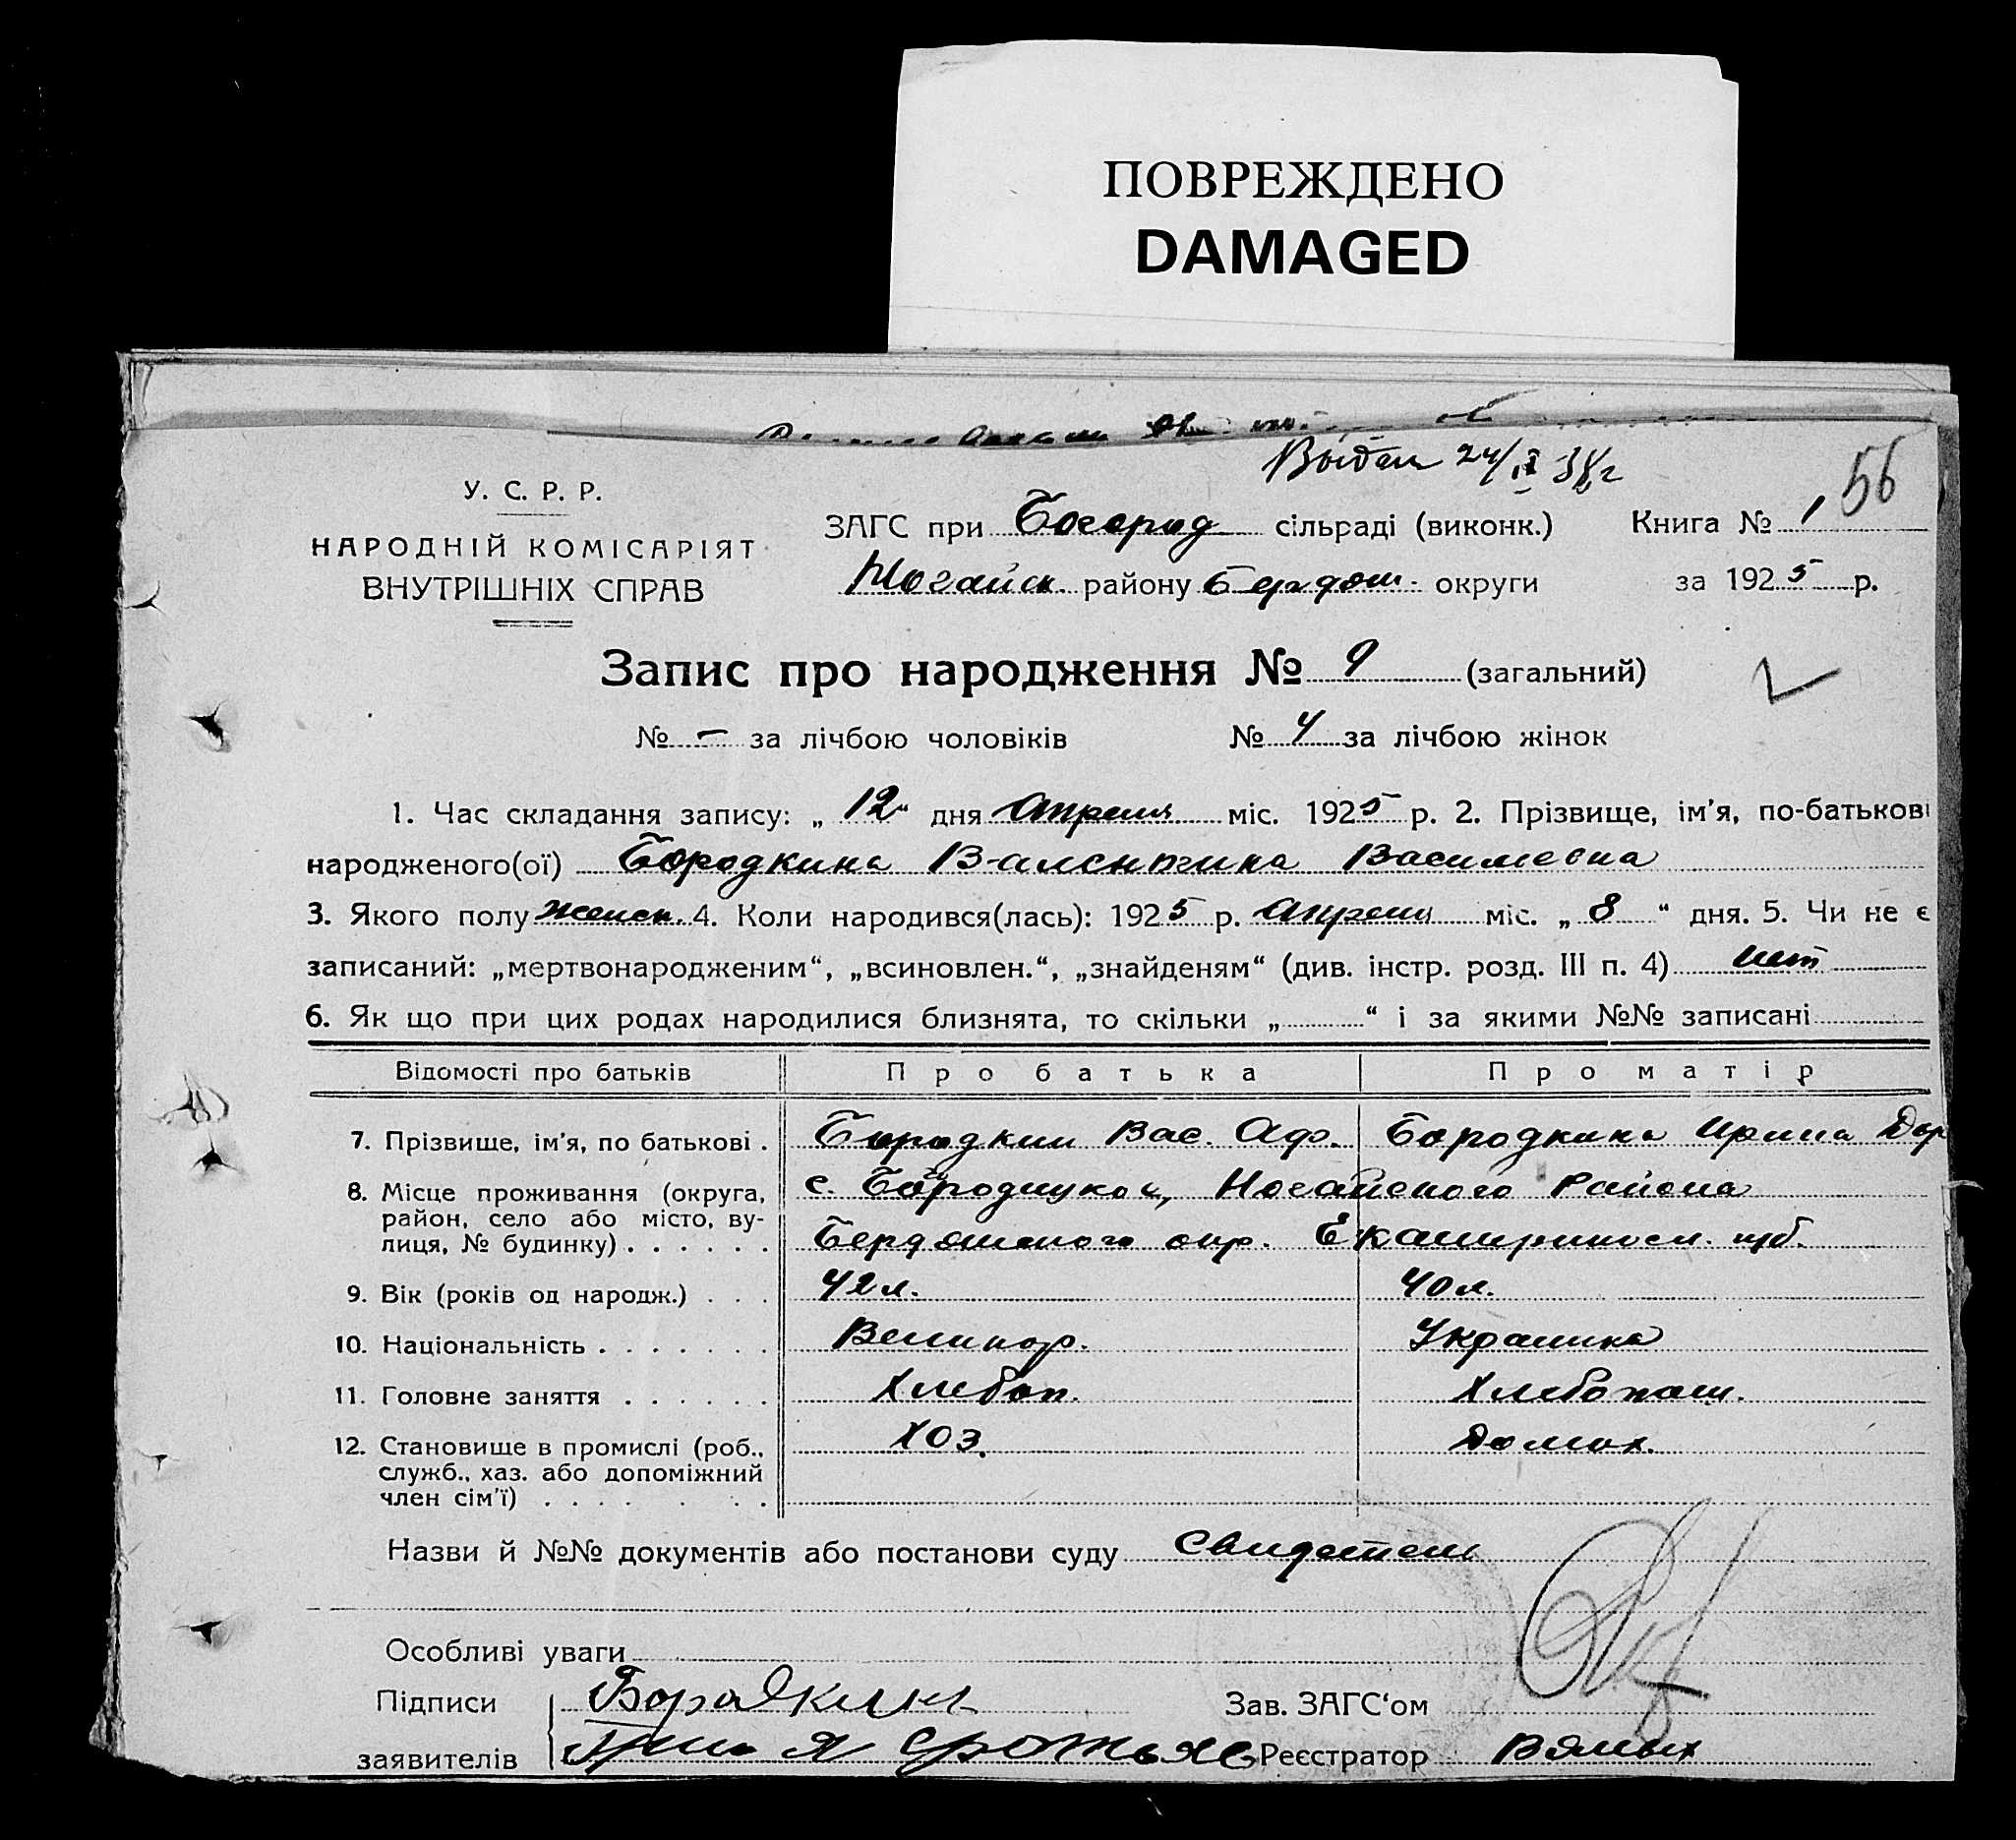 ПОВРЕЖДЕНО
DAMAGED
Выдан 24/II 38 г
56
У. С. Р. Р.
НАРОДНІЙ КОМІСАРІЯТ
ВНУТРІШНІХ СПРАВ
ЗАГС при Богород сільраді (виконк.) Книга № 1
Ногайск. району Бердян. округи за 1925 р.
Запис про народження № 9 (загальний)
№ – за лічбою чоловіків № 4 за лічбою жінок
1. Час складання запису: „12“ дня Апреля міс. 1925 р. 2. Прізвище, ім'я, по-батькові
народженого(ої) Бородкина Валентина Васильевна
3. Якого полу женск. 4. Коли народився(лась): 1925 р. Апреля міс. „8“ дня. 5. Чи не є
записаний: „мертвонародженим“, „всиновлен.“, „знайденям“ (див. інстр. розд. III п. 4) нет
6. Як що при цих родах народилися близнята, то скільки „ “ і за якими №№ записані
Відомості про батьків Про батька Про матір
7. Прізвище, ім'я, по батькові . Бородкин Вас. Аф. Бородкина Ирина Дор
8. Місце проживання (округа, с. Ногайского Района
район, село або місто, ву-
лиця, № будинку) . . . . . . Бердянского окр. Екатериносл. губ.
9. Вік (років од народж.) . . . 42 л. 40 л.
10. Національність . . . . . . . Великор. Украинка
11. Головне заняття . . . . . . Хлебоп. Хлебопаш.
12. Становище в промислі (роб., Хоз. Домох.
служб., хаз. або допоміжний
член сім'ї) . . . . . . .
Назви й №№ документів або постанови суду Свидетели
Особливі уваги
Підписи Бородкин Зав. ЗАГС'ом
заявителів Реєстратор